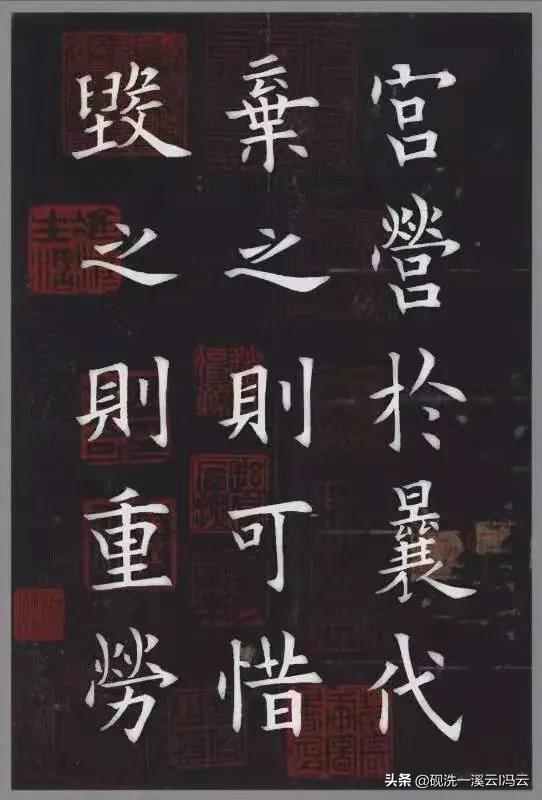 宫營於曩代
棄之則可惜
毀之則重勞
头条 @砚洗一溪云l冯云